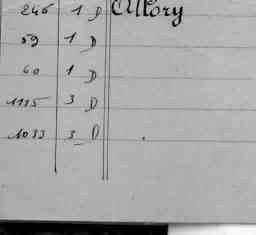 246 1 D Cillory
59 1 D
60 1 D
1195 3 D
1033 3 D